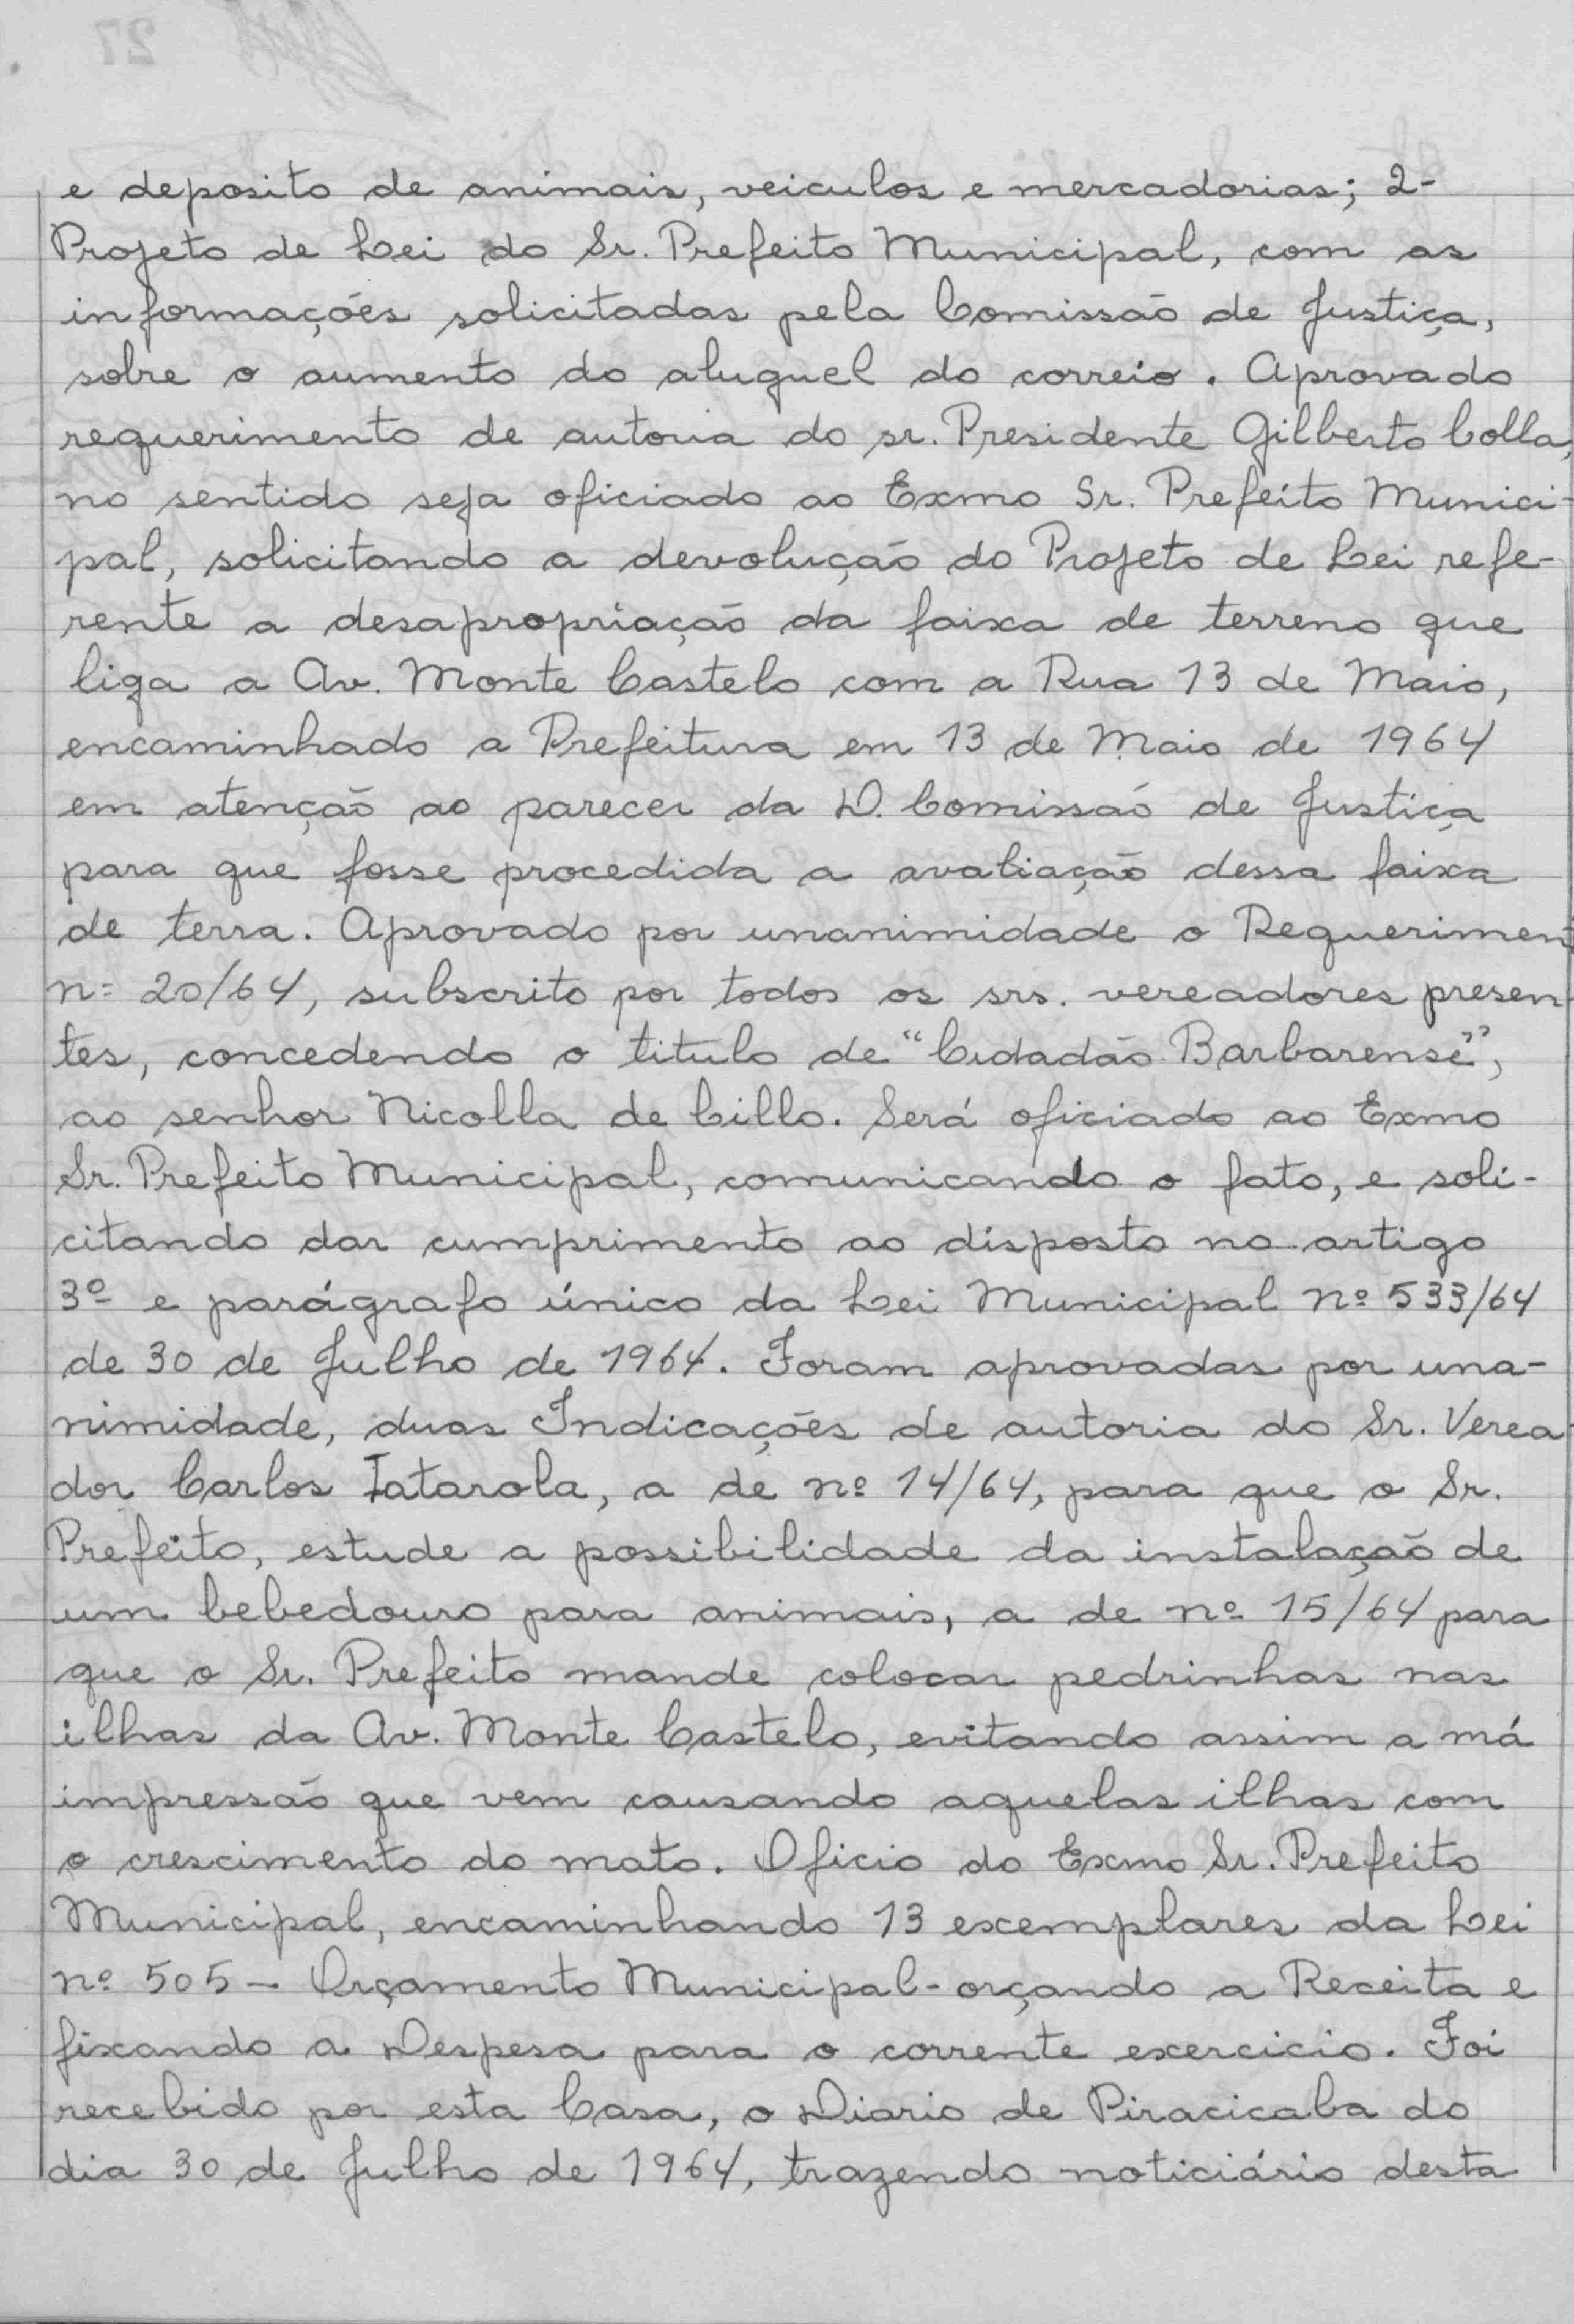 e deposito de animais, veiculos e mercadorias; 2-
Projeto de Lei do Sr. Prefeito Municipal, com as
informações solicitadas pela Comissão de Justiça,
sobre o aumento do aluguel do correio. Aprovado
requerimento de autoria do sr. Presidente Gilberto Colla,
no sentido seja oficiado ao Exmo Sr. Prefeito Munici-
pal, solicitando a devolução do Projeto de Lei refe-
rente a desapropriação da faixa de terreno que
liga a Av. Monte Castelo com a Rua 13 de Maio,
encaminhado a Prefeitura em 13 de Maio de 1964
em atenção ao parecer da D. Comissão de Justiça
para que fosse procedida a avaliação dessa faixa
de terra. Aprovado por unanimidade o Requerimen
nº 20/64, subscrito por todos os srs. vereadores presen-
tes, concedendo o titulo de "Cidadão Barbarense",
ao senhor Nicolla de Cillo. Será oficiado ao Exmo
Sr. Prefeito Municipal, comunicando o fato, e soli-
citando dar cumprimento ao disposto no artigo
3º e parágrafo único da Lei Municipal nº 533/64
de 30 de Julho de 1964. Foram aprovadas por una-
nimidade, duas Indicações de autoria do Sr. Verea-
dor Carlos Fatarola, a de nº 14/64, para que o Sr.
Prefeito, estude a possibilidade da instalação de
um bebedouro para animais, a de nº 15/64 para
que o Sr. Prefeito mande colocar pedrinhas nas
ilhas da Av. Monte Castelo, evitando assim a má
impressão que vem causando aquelas ilhas com
o crescimento do mato. Oficio do Exmo Sr. Prefeito
Municipal, encaminhando 13 exemplares da Lei
nº 505 - Orçamento Municipal - orçando a Receita e
fixando a Despesa para o corrente exercicio. Foi
recebido por esta Casa, o Diario de Piracicaba do
dia 30 de Julho de 1964, trazendo noticiário desta